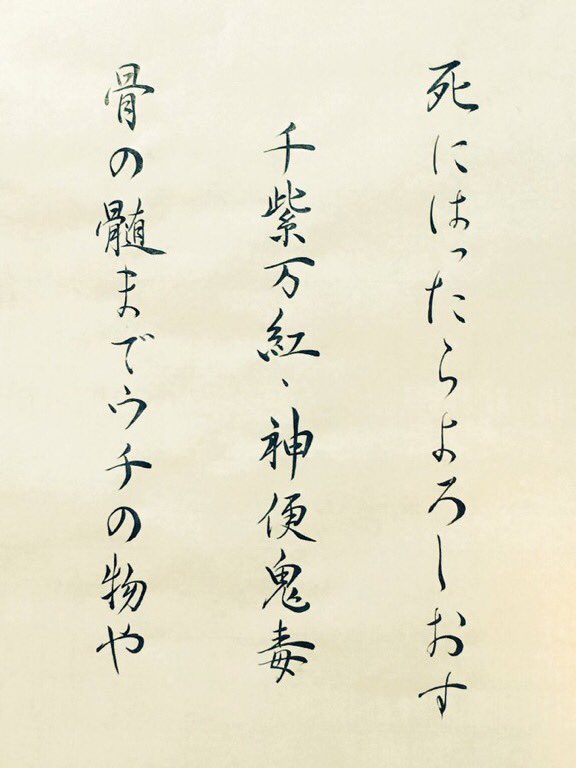 死にはったらよろしおす
千紫万紅、神便鬼毒
骨の髄までウチの物や